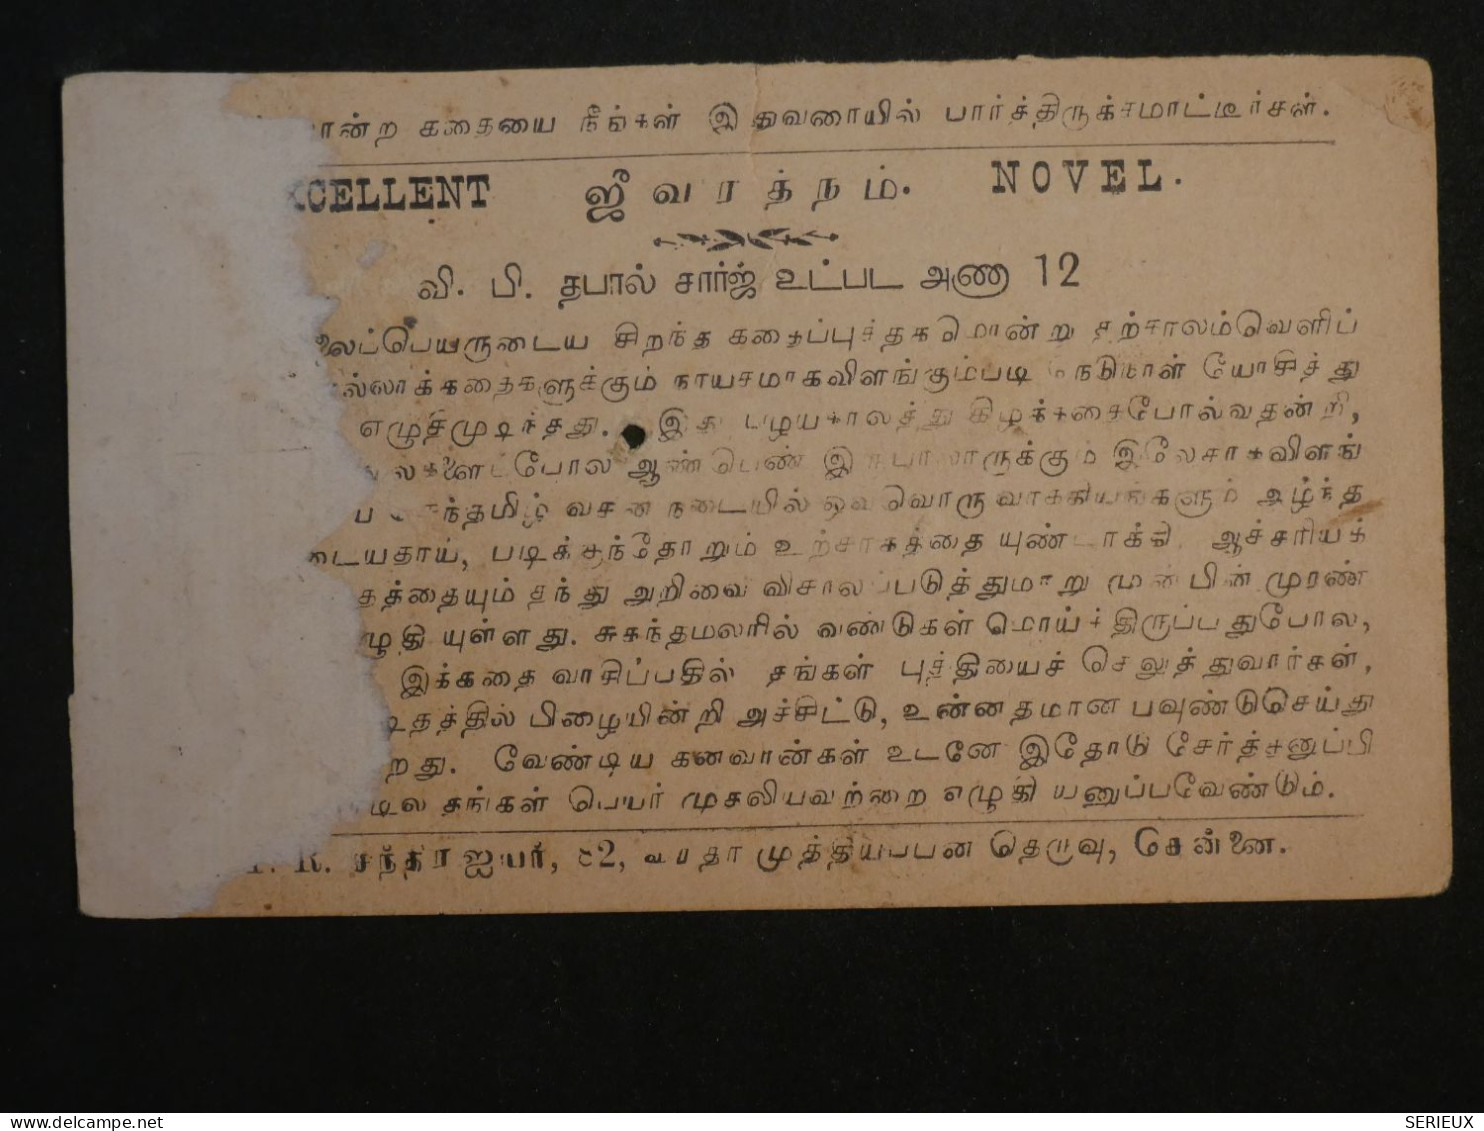 கதையை நீங்கள் இதுவரையில் பார்த்திருக்கமாட்டீர்கள்.
EXCELLENT ஜீவரத்நம். NOVEL.
வி. பி. தபால் சார்ஜ் உட்பட அணா 12
லைப்பெயருடைய சிறந்த கதைப்புத்தகமொன்று தற்காலம்வெளிப்
ல்லாக்கதைகளுக்கும் நாயகமாகவிளங்கும்படி நெடுநாள் யோசித்து
எழுதிமுடிந்தது. இது பழயகாலத்து கிழக்கதைபோல்வதன்றி,
ஆண்பெண் இருபாலாருக்கும் இலேசாகவிளங்
செந்தமிழ் வசன நடையில் ஒவ்வொரு வாக்கியங்களும் ஆழ்ந்த
டையதாய், படிக்குந்தோறும் உற்சாகத்தை யுண்டாக்கி, ஆச்சரியக்
தத்தையும் தந்து அறிவை விசாலப்படுத்துமாறு முன்பின் முரண்
ழுதி யுள்ளது. சுகந்தமலரில் வண்டுகள் மொய்த்திருப்பதுபோல,
இக்கதை வாசிப்பதில் தங்கள் புத்தியைச் செலுத்துவார்கள்.
டிதத்தில் பிழையின்றி அச்சிட்டு, உன்னதமான பவுண்டுசெய்து
றது. வேண்டிய கனவான்கள் உடனே இதோடு சேர்த்தனுப்பி
தங்கள் பெயர் முதலியவற்றை எழுதி யனுப்பவேண்டும்.
R. சந்திர ஐயர், முத்தியப்பன் தெருவு, சென்னை.
delcampe.net
SERIEUX